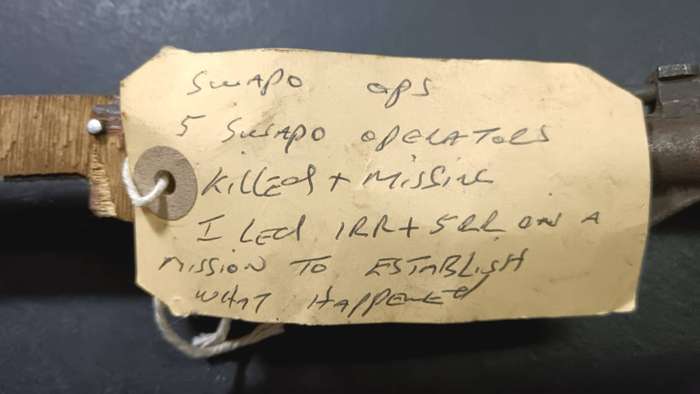 SWAPO OPS
5 SWAPO OPERATORS
KILLED + MISSING
I LED 1RR + 5RR ON A
MISSION TO ESTABLISH
WHAT HAPPENED